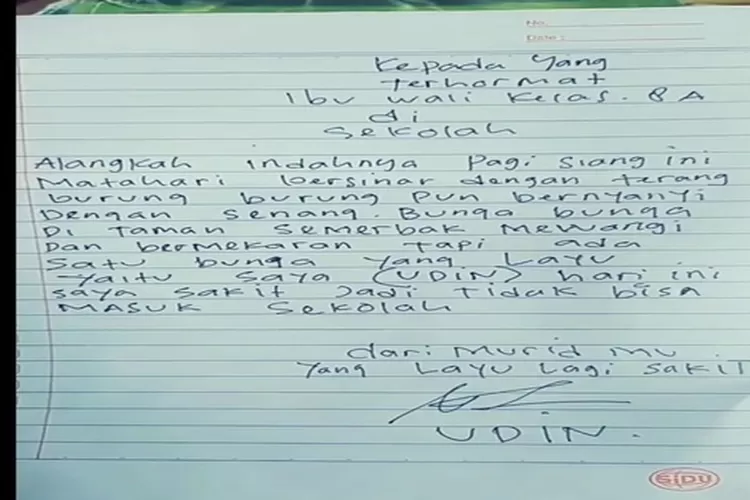 No.
Date :
Kepada Yang
Terhormat
Ibu Wali Kelas. 8 A
di
Sekolah
Alangkah indahnya Pagi siang ini
Matahari bersinar dengan terang
burung burung pun bernyanyi
Dengan senang. Bunga bunga
Di Taman Semerbak Mewangi
Dan bermekaran tapi ada
Satu bunga Yang Layu
Yaitu Saya (UDIN) hari ini
saya sakit Jadi Tidak bisa
MASUK Sekolah
dari Murid mu
Yang Layu Lagi Sakit
UDIN.
SIDU